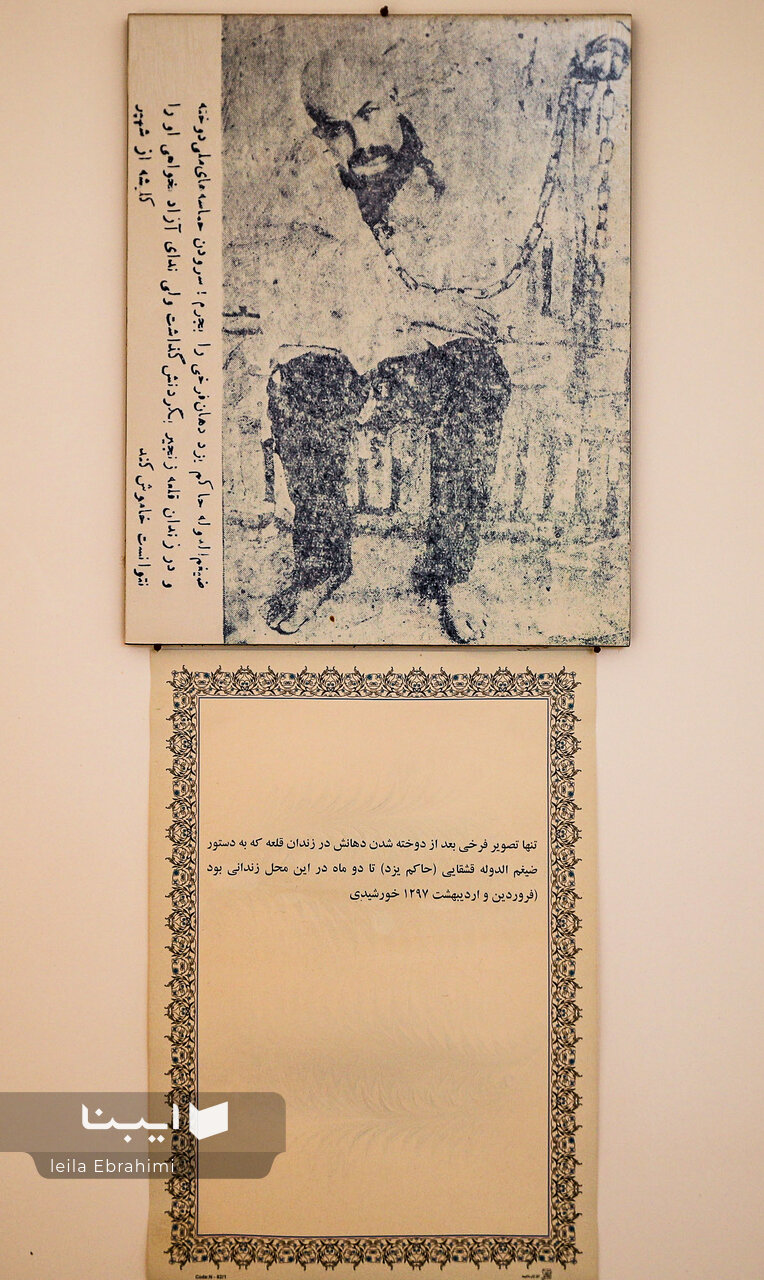 ضیغم‌الدوله حاکم یزد دهان فرخی را بجرم! سرودن حماسه‌های ملی دوخته
و در زندان قلعه زنجیر بگردنش گذاشت ولی ندای آزاد یخواهی او را
نتوانست خاموش کند
از شهیر
تنها تصویر فرخی بعد از دوخته شدن دهانش در زندان قلعه که به دستور
ضیغم الدوله قشقایی (حاکم یزد) تا دو ماه در این محل زندانی بود
(فروردین و اردیبهشت ۱۲۹۷ خورشیدی
ایبنا
leila Ebrahimi
Code:N - 82/1